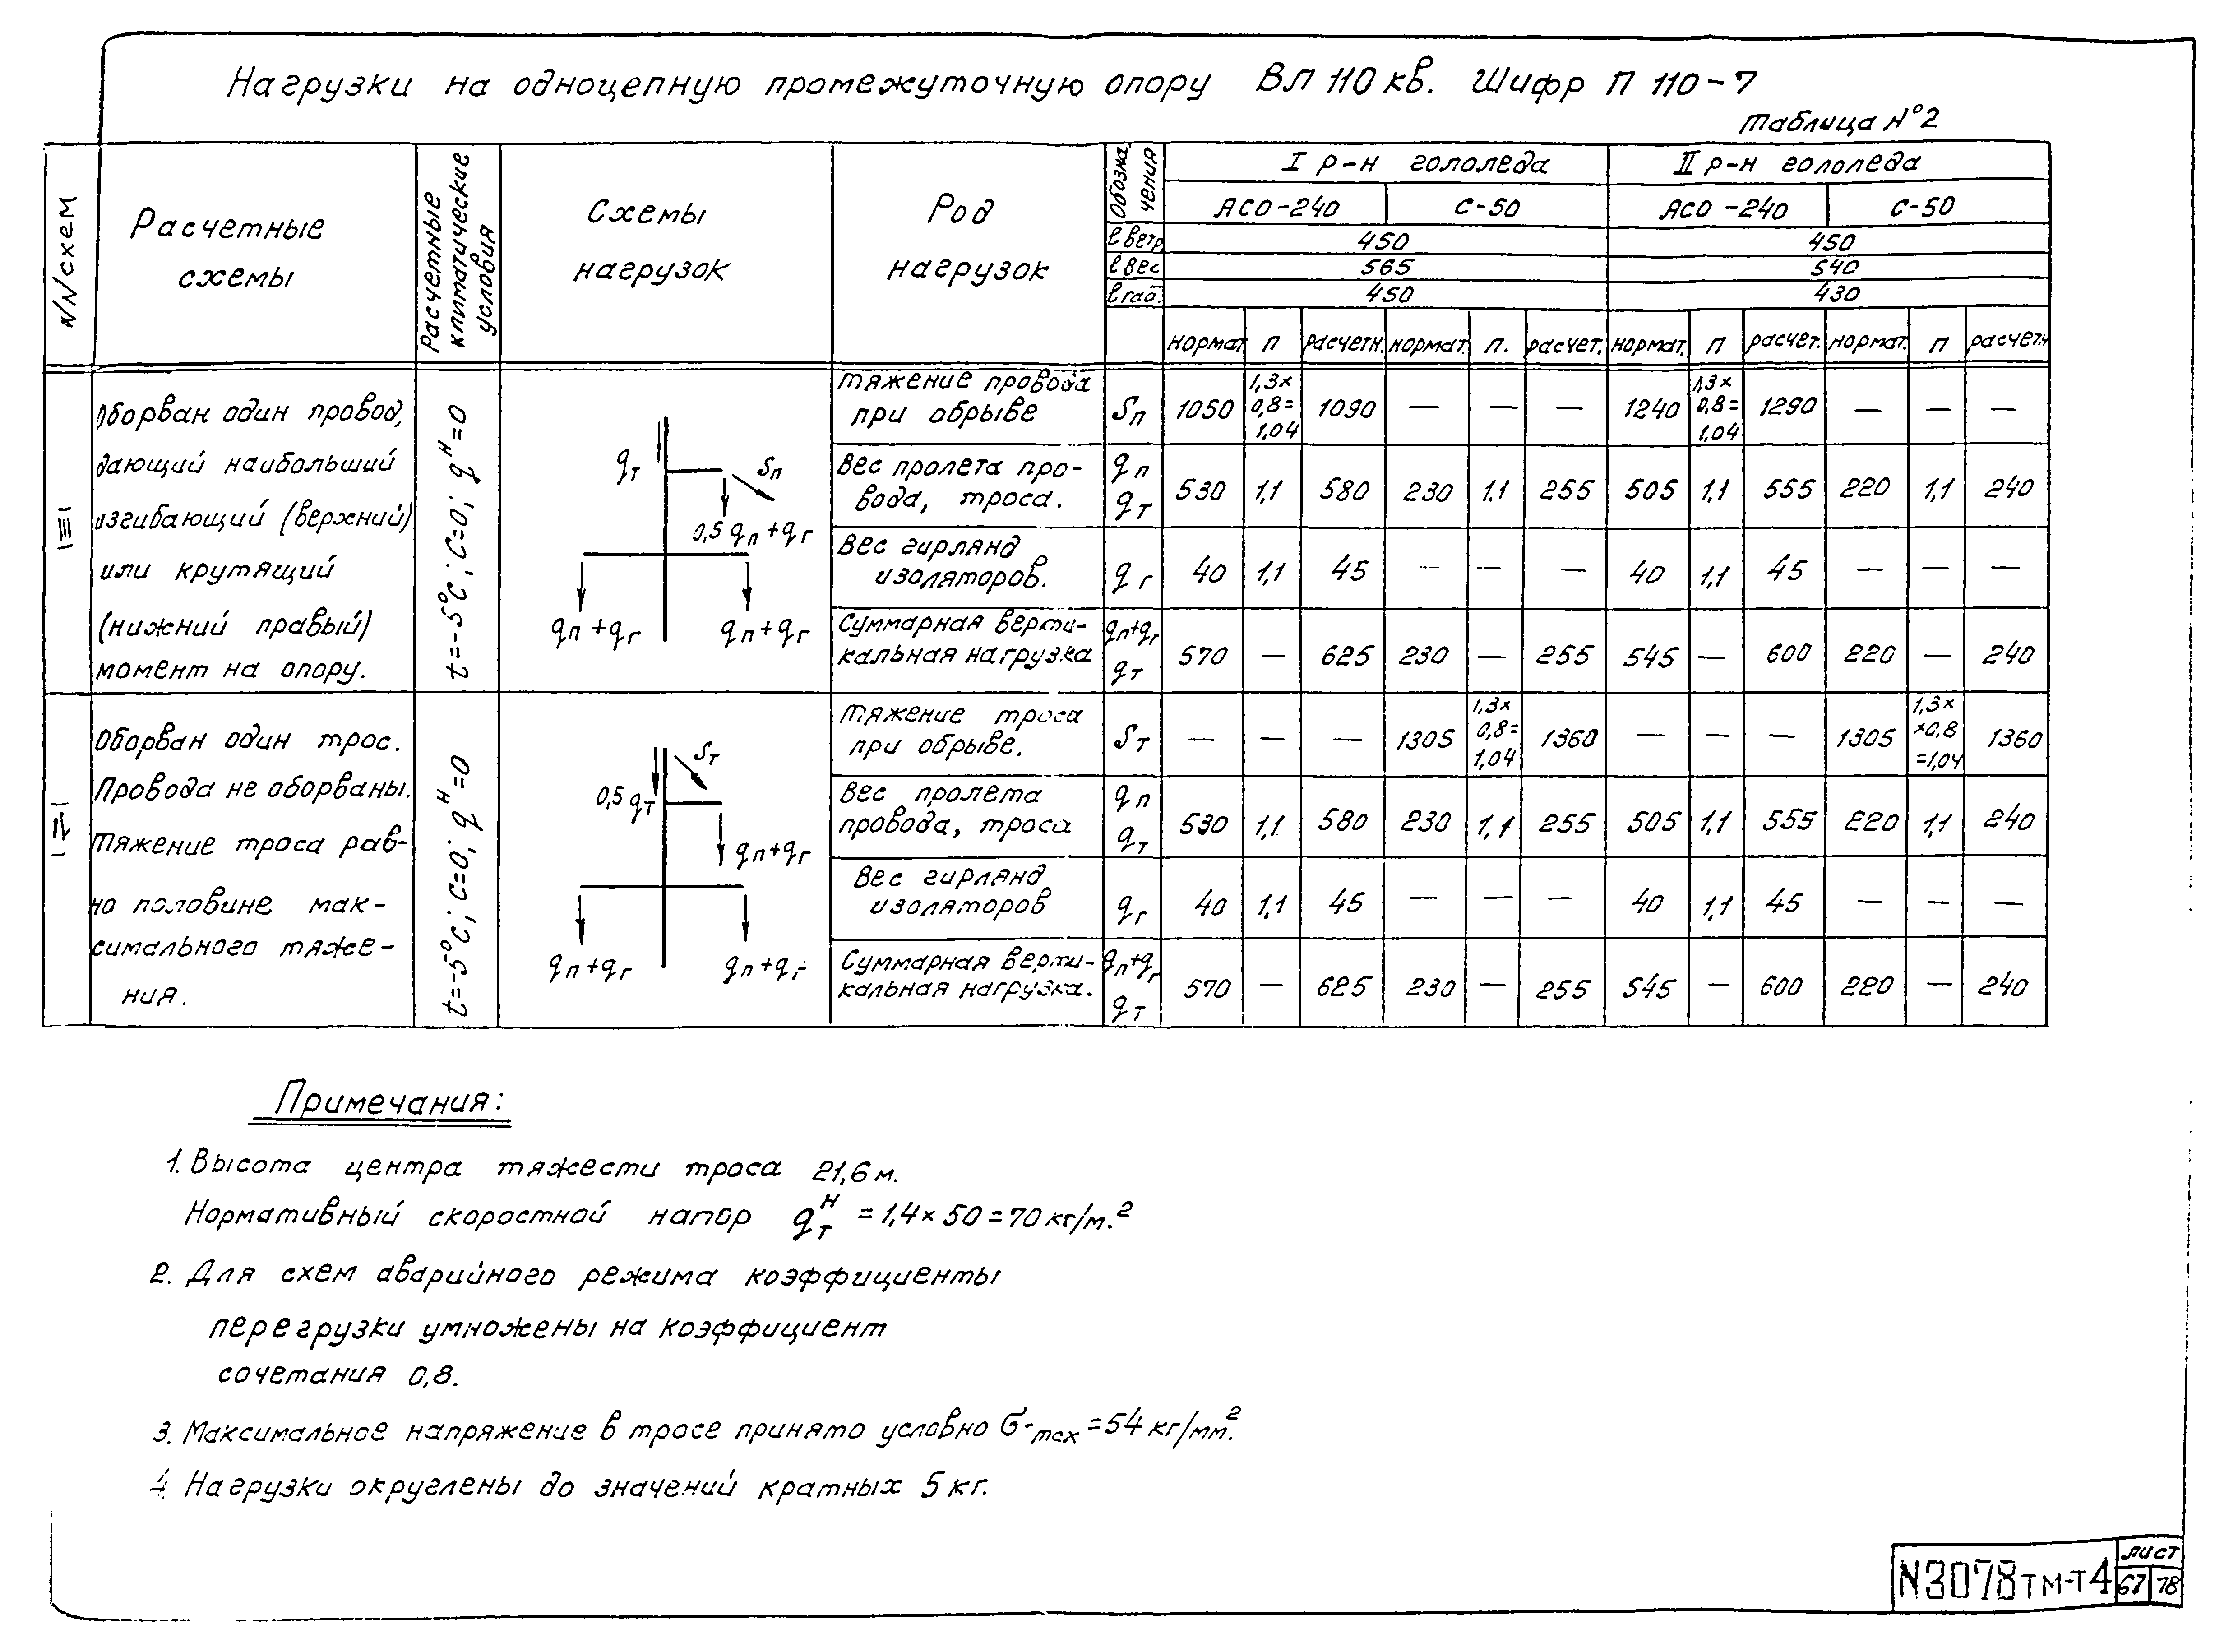 Нагрузки на одноцепную промежуточную опору ВЛ 110 кв. Шифр П 110-7
Таблица N°2
NN схем
Расчетные схемы
Расчетные климатические условия
Схемы нагрузок
Род нагрузок
Обозначения
I р-н гололеда
II р-н гололеда
АСО-240 С-50 АСО-240 С-50
ℓ ветр 450 450
ℓ вес 565 540
ℓ габ. 450 430
нормат. п расчетн. нормат. п. расчет. нормат. п расчет. нормат. п расчетн
III
Оборван один провод,
дающий наибольший
изгибающий (верхний)
или крутящий
(нижний правый)
момент на опору.
t=-5°C; C=0; q^н=0
qт
Sп
0,5 qп+qг
qп+qг qп+qг
тяжение провода при обрыве Sп 1050 1,3×0,8=1,04 1090 — — — 1240 1,3×0,8=1,04 1290 — — —
Вес пролета провода, троса. qп qт 530 1,1 580 230 1.1 255 505 1,1 555 220 1,1 240
Вес гирлянд изоляторов. qг 40 1,1 45 — — — 40 1,1 45 — — —
Суммарная вертикальная нагрузка qп+qг qт 570 — 625 230 — 255 545 — 600 220 — 240
IV
Оборван один трос.
Провода не оборваны.
Тяжение троса рав-
но половине мак-
симального тяже-
ния.
t=-5°C; C=0; q^н=0
Sт
0,5 qт
qп+qг
qп+qг qп+qг
Тяжение троса при обрыве. Sт — — — 1305 1,3×0,8=1,04 1360 — — — 1305 1,3××0,8=1,04 1360
Вес пролета провода, троса qп qт 530 1,1 580 230 1,1 255 505 1,1 555 220 1,1 240
Вес гирлянд изоляторов qг 40 1,1 45 — — — 40 1,1 45 — — —
Суммарная вертикальная нагрузка. qп+qг qт 570 — 625 230 — 255 545 — 600 220 — 240
Примечания:
1. Высота центра тяжести троса 21,6 м.
Нормативный скоростной напор qт^н = 1,4×50=70 кг/м.²
2. Для схем аварийного режима коэффициенты
перегрузки умножены на коэффициент
сочетания 0,8.
3. Максимальное напряжение в тросе принято условно σ-max=54 кг/мм².
4. Нагрузки округлены до значений кратных 5 кг.
N3078тм-т4
лист
67 78